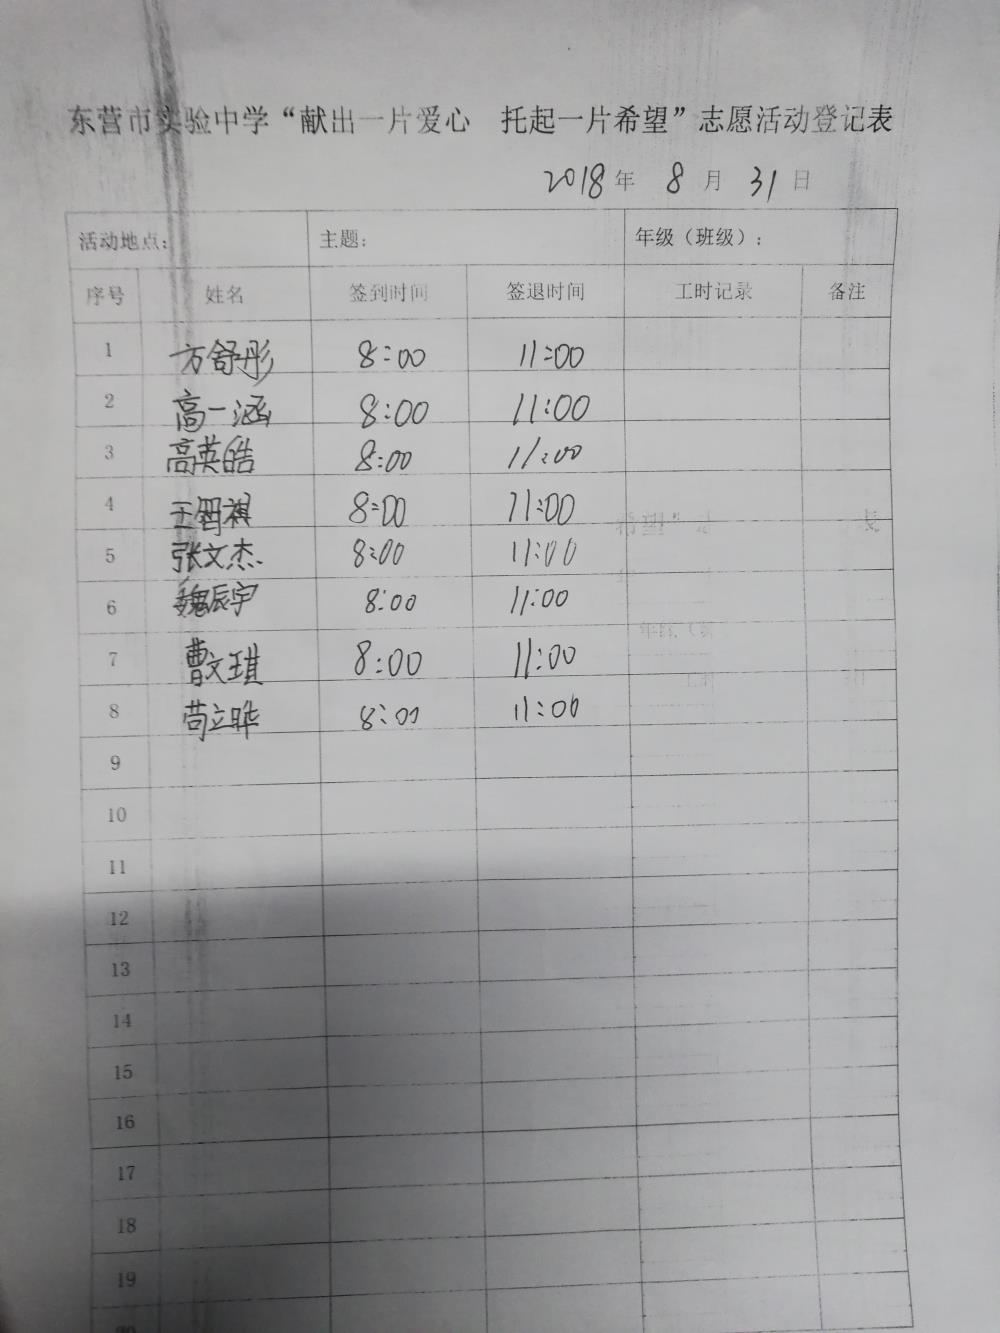 东营市实验中学“献出一片爱心 托起一片希望”志愿活动登记表
2018年 8月 31日
活动地点： 主题： 年级（班级）：
序号 姓名 签到时间 签退时间 工时记录 备注
1 方舒彤 8:00 11:00
2 高一涵 8:00 11:00
3 高英皓 8:00 11:00
4 王 祺 8:00 11:00
5 张文杰 8:00 11:00
6 魏辰宇 8:00 11:00
7 曹文琪 8:00 11:00
8 苟立晔 8:00 11:00
9
10
11
12
13
14
15
16
17
18
19
20